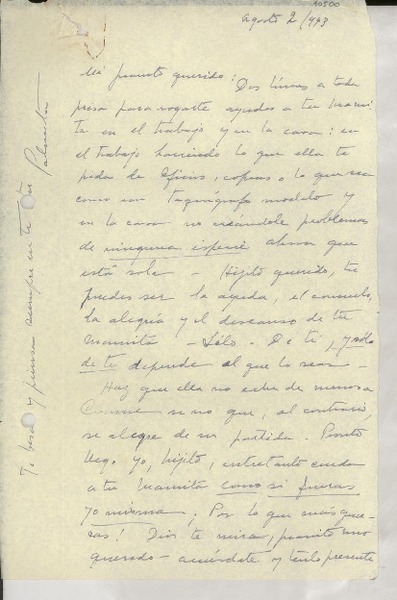 10500
Agosto 2/943
Mi Juanito querido: Dos líneas a toda
prisa para rogarte ayudes a tu Mami-
ta en el trabajo y en la casa: en
el trabajo haciendo lo que ella te
pida de oficios, copias o lo que sea
como un taquígrafo modelo y
en la casa no creándole problemas
de ninguna especie ahora que
está sola - Hijito querido, tu
puedes ser la ayuda, el consuelo,
la alegría y el descanso de tu
Mamita - Sólo - De ti, y sólo
de ti depende el que lo seas -
Haz que ella no eche de menos a
Connie si no que, al contrario,
se alegre de su partida. Pronto
llego yo, hijito, entretanto cuida
a tu Mamita como si fueras
yo misma; Por lo que más quie-
ras! Dios te mira, Juanito mío
querido - acuérdate y tenlo presente
Te besa y piensa siempre en ti tu Palmita